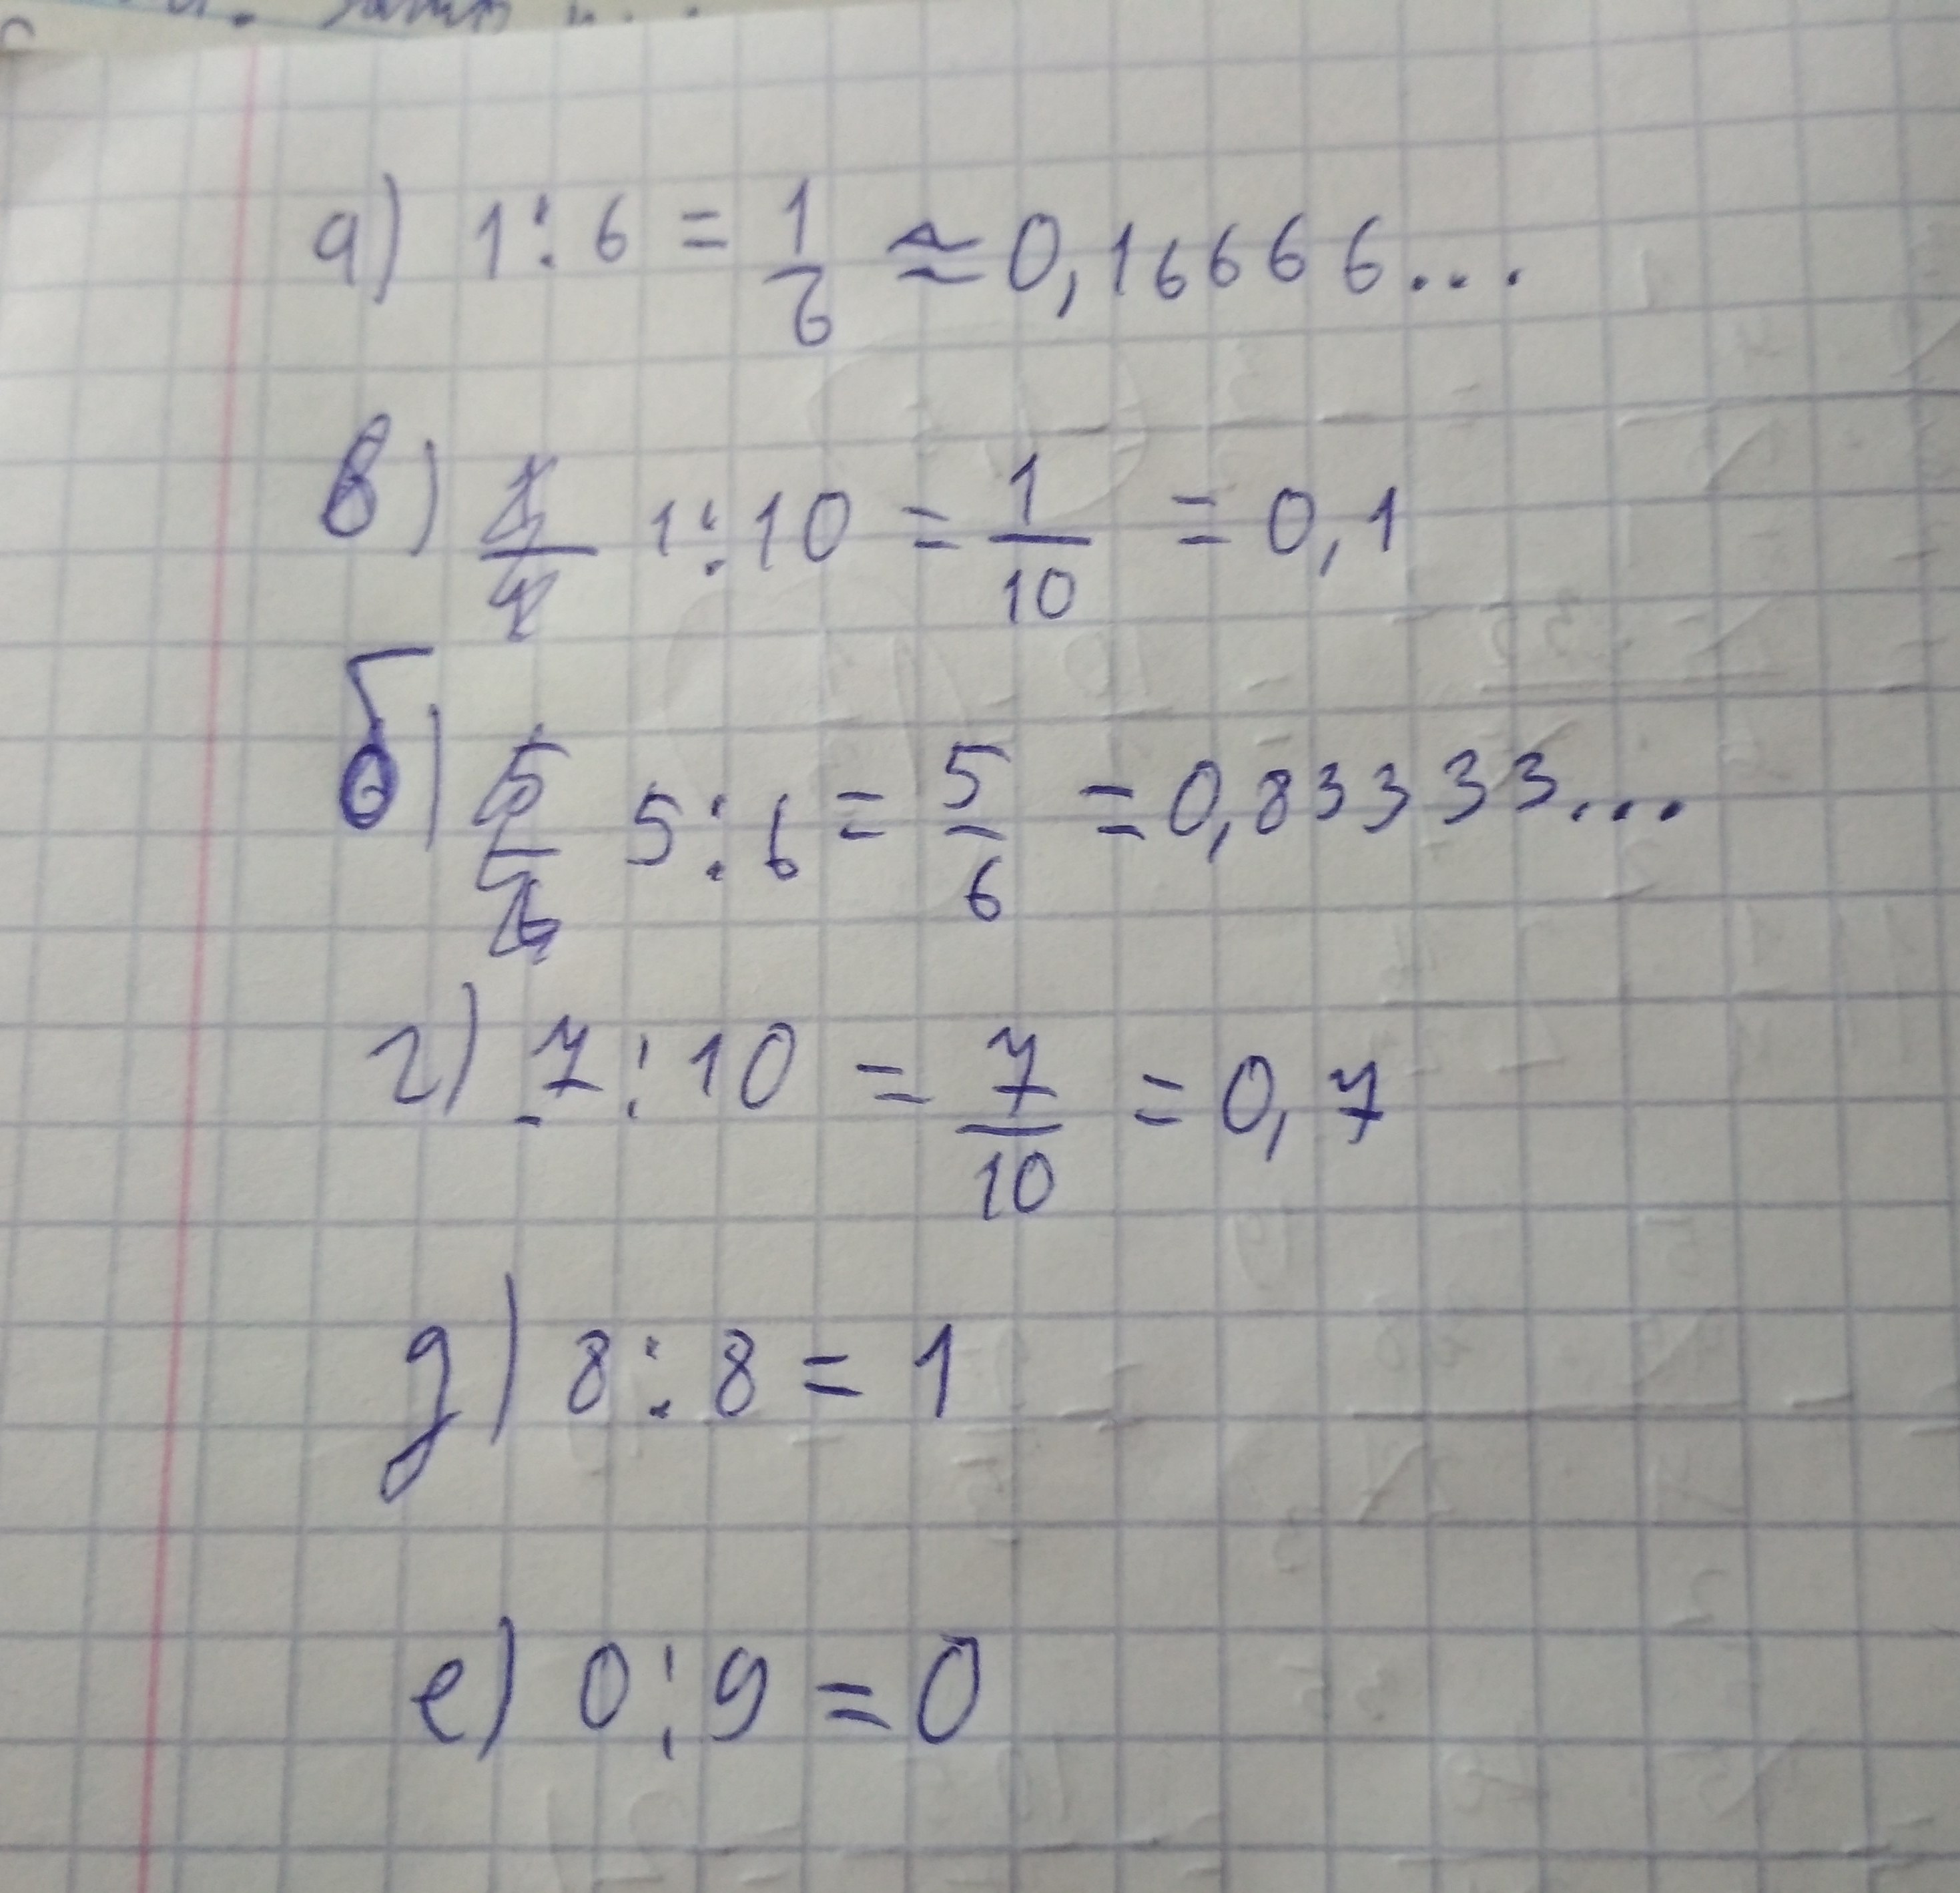 а) 1 : 6 = 1/6 ≈ 0,16666...
в) 1 : 10 = 1/10 = 0,1
б) 5 : 6 = 5/6 = 0,83333...
г) 7 : 10 = 7/10 = 0,7
д) 8 : 8 = 1
е) 0 : 9 = 0